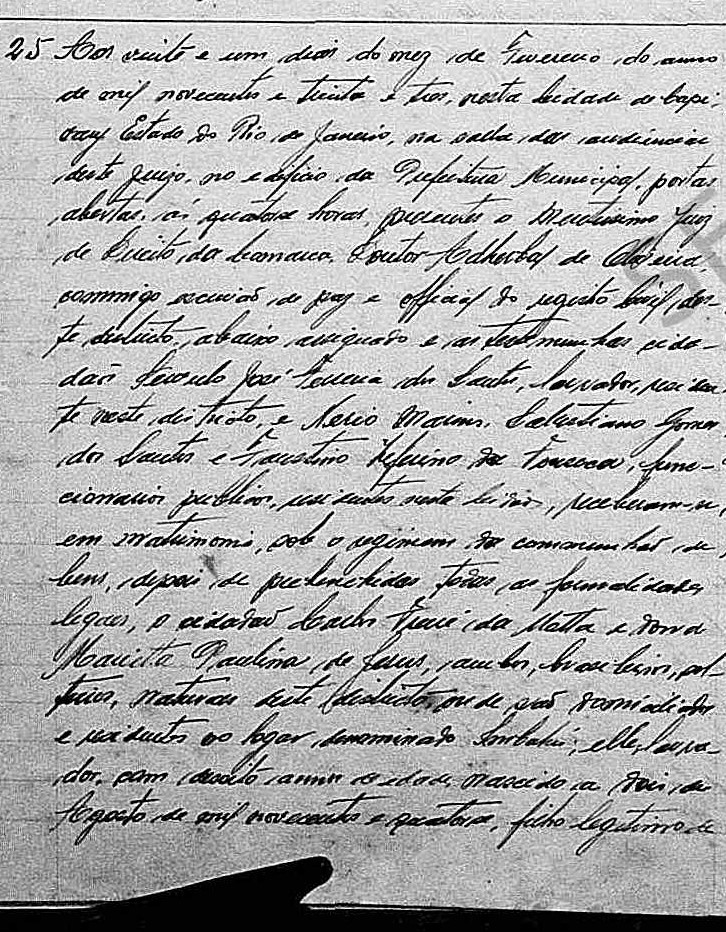 25 Aos vinte e um dias do mez de Fevereiro do anno
de mil novecentos e trinta e tres, nesta cidade de Capi-
vary Estado do Rio de Janeiro, na salla das audiencias
deste juizo, no edificio da Prefeitura Municipal, portas
abertas, ás quatorse horas, presentes o Meretissimo Juiz
de Direito da Comarca, Doutor Adherbal de Oliveira,
commigo escrivão de paz e official do registo Civil, des-
te districto, abaixo assignado e as testemunhas cida-
dãos José Ferreira dos Santos, lavrador, residen-
te neste districto, e Nerio Marins, Salustiano Gomes
dos Santos e Faustino Zeferino da Fonseca, func-
cionarios publicos, residentes nesta cidade, receberam-se,
em matrimonio, sob o regimem da communhão de
bens, depois de prehenchidas todas as formalidades
legaes, o cidadão Carlos da Motta e dona
Marietta Paulina de Jesus, ambos, brasileiros, sol-
teiros, naturaes deste districto onde são domiciliados
e residentes no logar denominado elle, lavra-
dor, com desoito annos de edade, nascido a dois de
Agosto de mil novecentos e quatorse, filho legitimo de